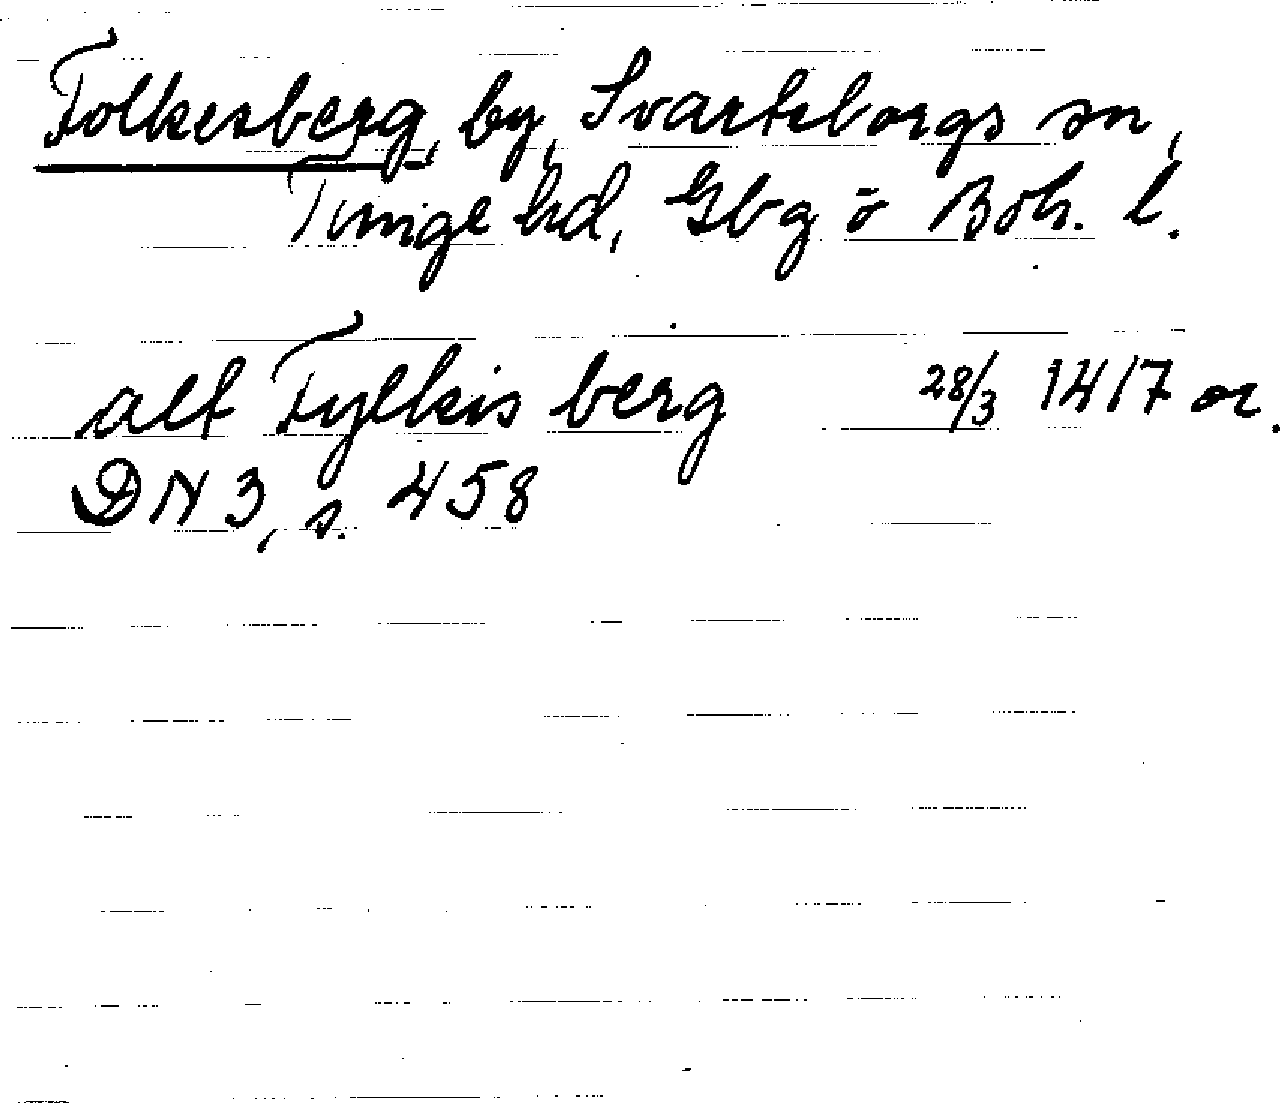 Folkesberg, by, Svarteborgs sn,
Tunge hd, Gbg o Boh. l.
alt Fylkis berg 28/3 1417 or.
DN 3, s. 458